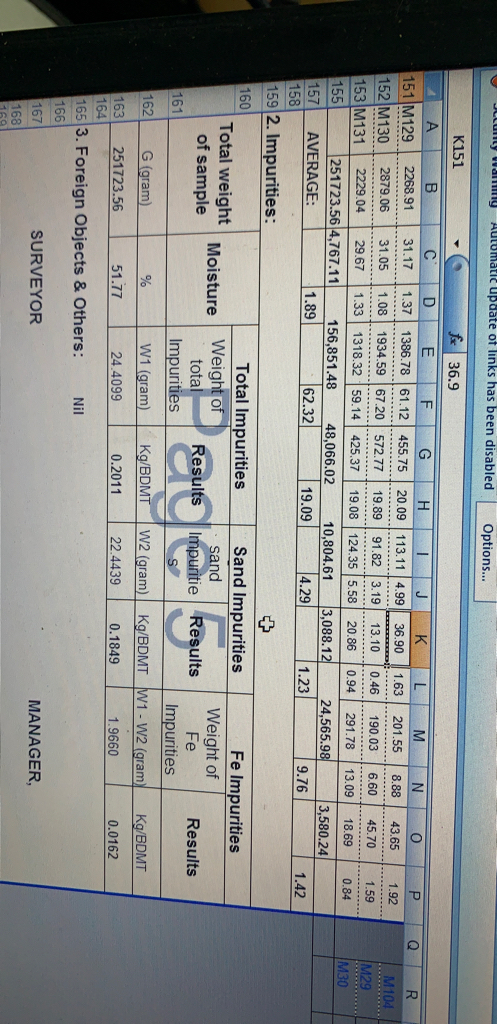 Automatic update of links has been disabled Options...
K151 fx 36.9
A B C D E F G H I J K L M N O P Q R
151 M129 2268.91 31.17 1.37 1386.78 61.12 455.75 20.09 113.11 4.99 36.90 1.63 201.55 8.88 43.65 1.92 M104
152 M130 2879.06 31.05 1.08 1934.59 67.20 572.77 19.89 91.82 3.19 13.10 0.46 190.03 6.60 45.70 1.59 M29
153 M131 2229.04 29.67 1.33 1318.32 59.14 425.37 19.08 124.35 5.58 20.86 0.94 291.78 13.09 18.69 0.84 M30
155 251723.56 4,767.11 156,851.48 48,066.02 10,804.61 3,088.12 24,565.98 3,580.24
157 AVERAGE: 1.89 62.32 19.09 4.29 1.23 9.76 1.42
158
159 2. Impurities:
160 Total weight of sample Moisture Total Impurities Sand Impurities Fe Impurities
161 Weight of total Impurities Results sand Impuritie s Results Weight of Fe Impurities Results
162 G (gram) % W1 (gram) Kg/BDMT W2 (gram) Kg/BDMT W1 - W2 (gram) Kg/BDMT
163 251723.56 51.77 24.4099 0.2011 22.4439 0.1849 1.9660 0.0162
164
165 3. Foreign Objects & Others: Nil
166
167 SURVEYOR MANAGER,
168
169
Page 5